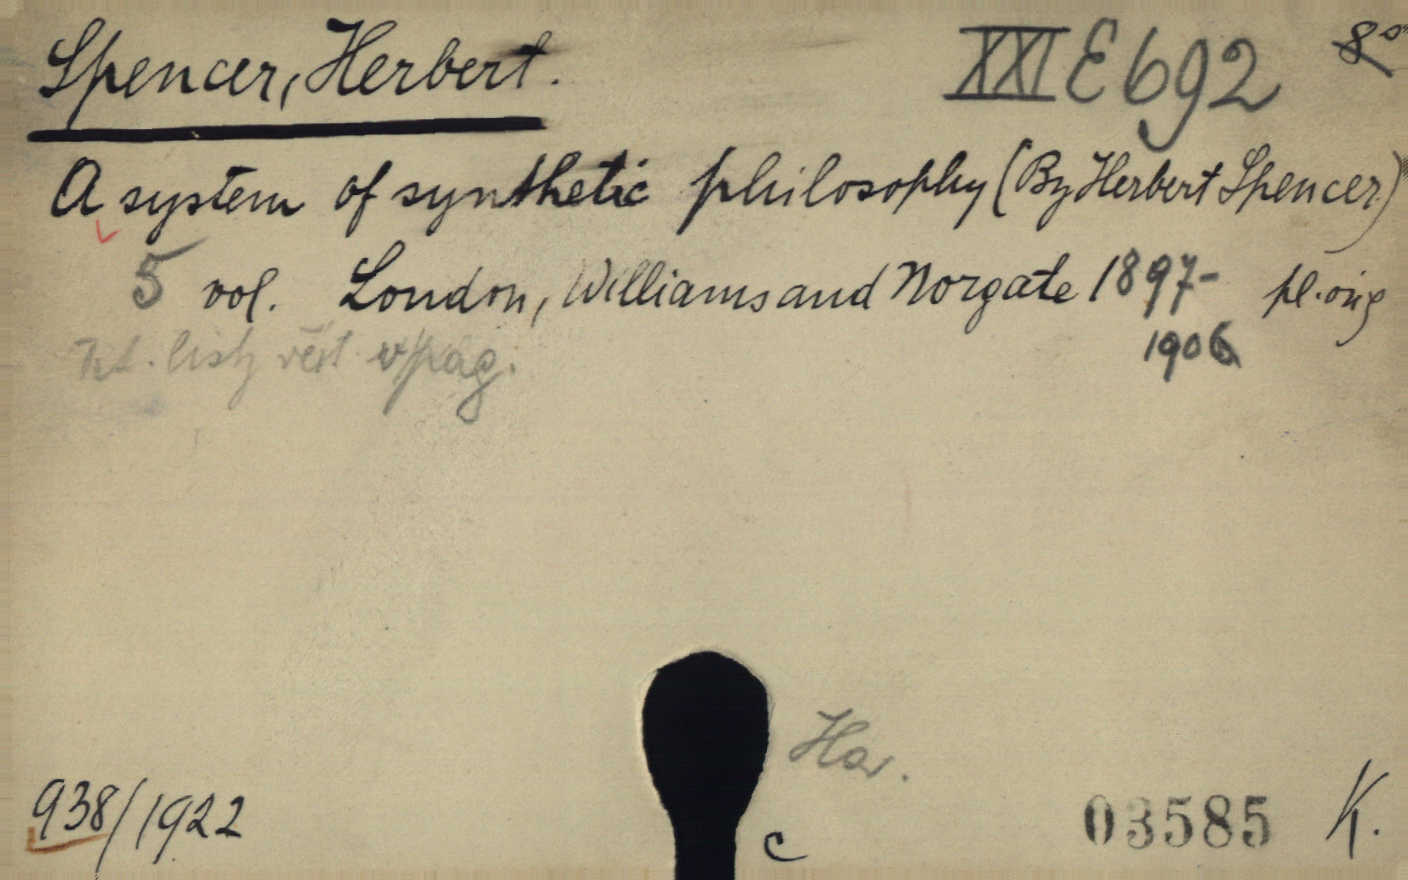 Spencer, Herbert.
XXI E 692 8°
A system of synthetic philosophy (By Herbert Spencer)
5 vol. London, Williams and Norgate 1897-
1906
pl. orig
listy v pag.
Har.
938/1922
c
03585
K.